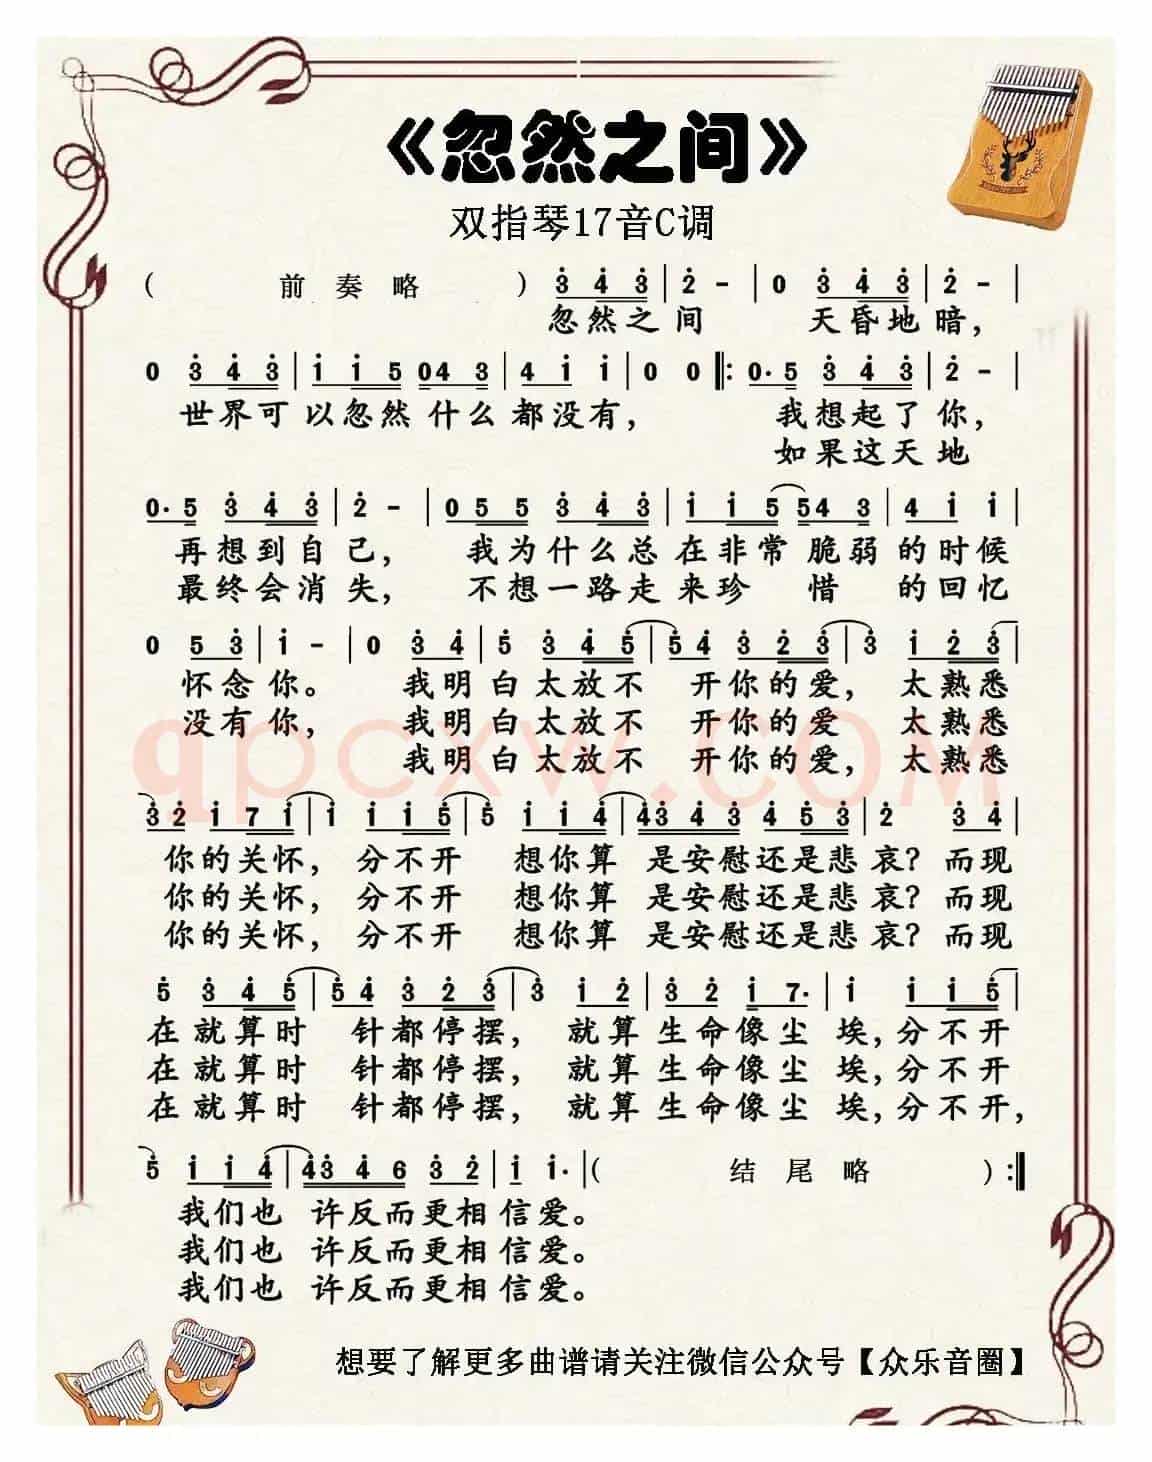 《忽然之间》
双指琴17音C调
( 前 奏 略 ) 3̇ 4̇ 3̇ | 2̇ - | 0 3̇ 4̇ 3̇ | 2̇ - |
忽然之间 天昏地暗，
0 3̇ 4̇ 3̇ | 1̇ 1̇ 5 04 3 | 4 1̇ 1̇ | 0 0 ‖: 0· 5 3̇ 4̇ 3̇ | 2̇ - |
世界可以忽然什么都没有， 我想起了你，
如果这天地
0· 5 3̇ 4̇ 3̇ | 2̇ - | 0 5 5 3̇ 4̇ 3̇ | 1̇ 1̇ 5 54 3 | 4 1̇ 1̇ |
再想到自己， 我为什么总在非常脆弱的时候
最终会消失， 不想一路走来珍惜的回忆
0 5 3̇ | 1̇ - | 0 3̇ 4̇ | 5̇ 3̇ 4̇ 5̇ | 5̇ 4̇ 3̇ 2̇ 3̇ | 3̇ 1̇ 2̇ 3̇ |
怀念你。 我明白太放不开你的爱，太熟悉
没有你， 我明白太放不开你的爱 太熟悉
我明白太放不开你的爱，太熟悉
qpcxw.COM
3̇ 2̇ 1̇ 7 1̇ | 1̇ 1̇ 1̇ 5̇ | 5̇ 1̇ 1̇ 4̇ | 4̇3̇ 4̇ 3̇ 4̇ 5̇ 3̇ | 2̇ 3̇ 4̇ |
你的关怀，分不开 想你算 是安慰还是悲哀？而现
你的关怀，分不开 想你算 是安慰还是悲哀？而现
你的关怀，分不开 想你算 是安慰还是悲哀？而现
5̇ 3̇ 4̇ 5̇ | 5̇ 4̇ 3̇ 2̇ 3̇ | 3̇ 1̇ 2̇ | 3̇ 2̇ 1̇ 7· | 1̇ 1̇ 1̇ 5̇ |
在就算时 针都停摆， 就算生命像尘埃，分不开
在就算时 针都停摆， 就算生命像尘埃，分不开
在就算时 针都停摆， 就算生命像尘埃，分不开，
5̇ 1̇ 1̇ 4̇ | 4̇3̇ 4̇ 6 3̇ 2̇ | 1̇ 1̇· ( 结 尾 略 ) :‖
我们也 许反而更相信爱。
我们也 许反而更相信爱。
我们也 许反而更相信爱。
想要了解更多曲谱请关注微信公众号【众乐音圈】